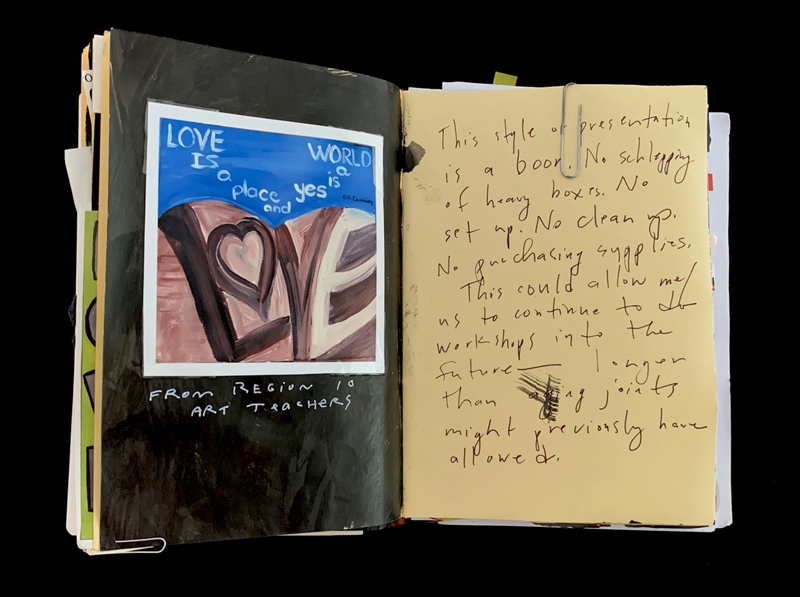 LOVE
IS
a
place
and
yes
is
a
WORLD
e.e. Cummings
FROM REGION 10
ART TEACHERS
This style of presentation
is a boon. No schlepping
of heavy boxes. No
set up. No clean up.
No purchasing supplies.
This could allow me/
us to continue to do
workshops into the
future— longer
than joints
might previously have
allowed.